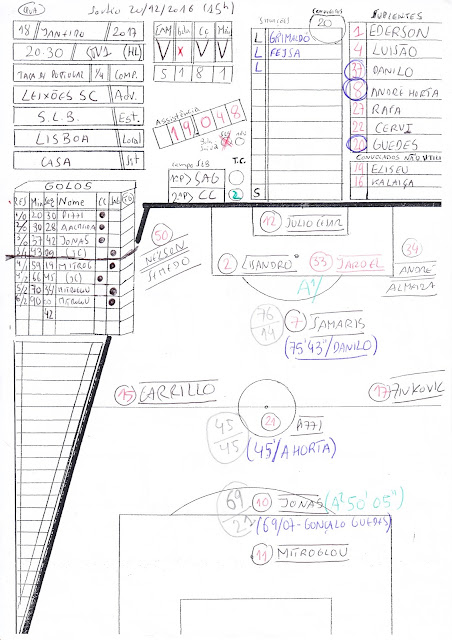 Sorteio 20/12/2016 (15h)
18 JANEIRO 2017
20:30 TV1 (HL)
TAÇA DE PORTUGAL 1/4 Comp.
LEIXÕES SC Adv.
S.L.B. Est.
LISBOA Local
CASA Sit
CAM Bola CÇ Mão
V x V V
5 1 8 1
Assistência
19.048
campo SLB T.C.
1ªP> SAG
2ªP> CC 2
CONVOCADOS
20
L GRIMALDO
L FEJSA
L
S
SUPLENTES
1 EDERSON
4 LUISÃO
37 DANILO
8 ANDRÉ HORTA
27 RAFA
22 CERVI
20 GUEDES
CONVOCADOS NÃO UTILI
19 ELISEU
16 KALAICA
GOLOS
RES Min Seg Nome CC
1/0 20 30 PIZZI
2/0 30 28
3/0 37 42 JONAS
4/1 59 14 MITROG
5/2 70 34 MITROGLOU
6/2 90 MITROGLOU
42
12 JULIO CÉSAR
50 NÉLSON SEMEDO
2 LISANDRO
53 JARDEL
34 ANDRÉ ALMEIDA
76
14
7 SAMARIS
(75'43"/DANILO)
15 CARRILLO
17 ZIVKOVIC
21 PIZZI
45
45
(45'/A HORTA)
69
10 JONAS (Aª 50' 05")
(69/07 - GONÇALO GUEDES)
11 MITROGLOU